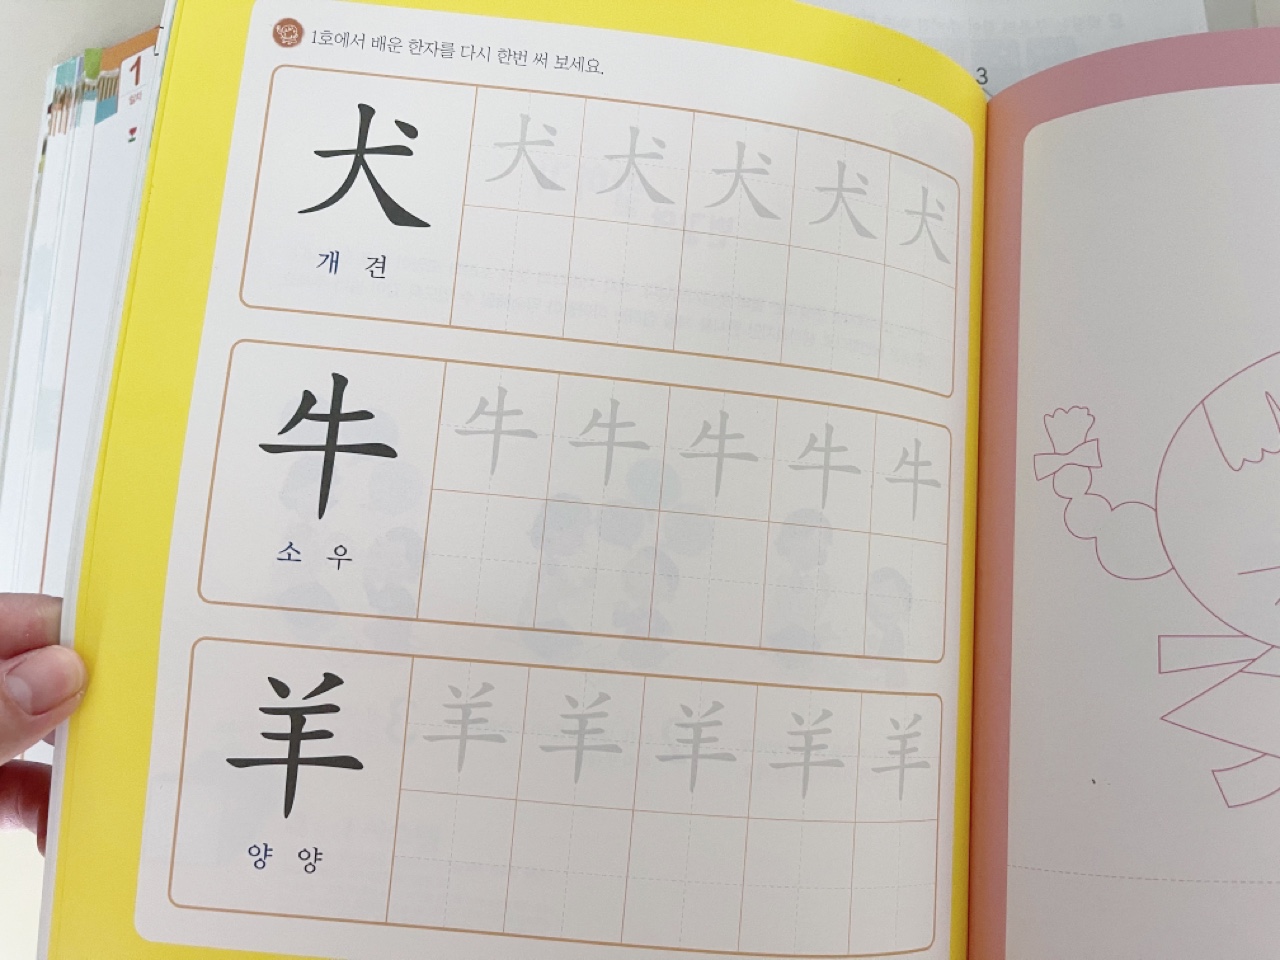 1호에서 배운 한자를 다시 한번 써 보세요.
犬 犬 犬 犬 犬 犬
개 견
牛 牛 牛 牛 牛 牛
소 우
羊 羊 羊 羊 羊 羊
양 양
1
3